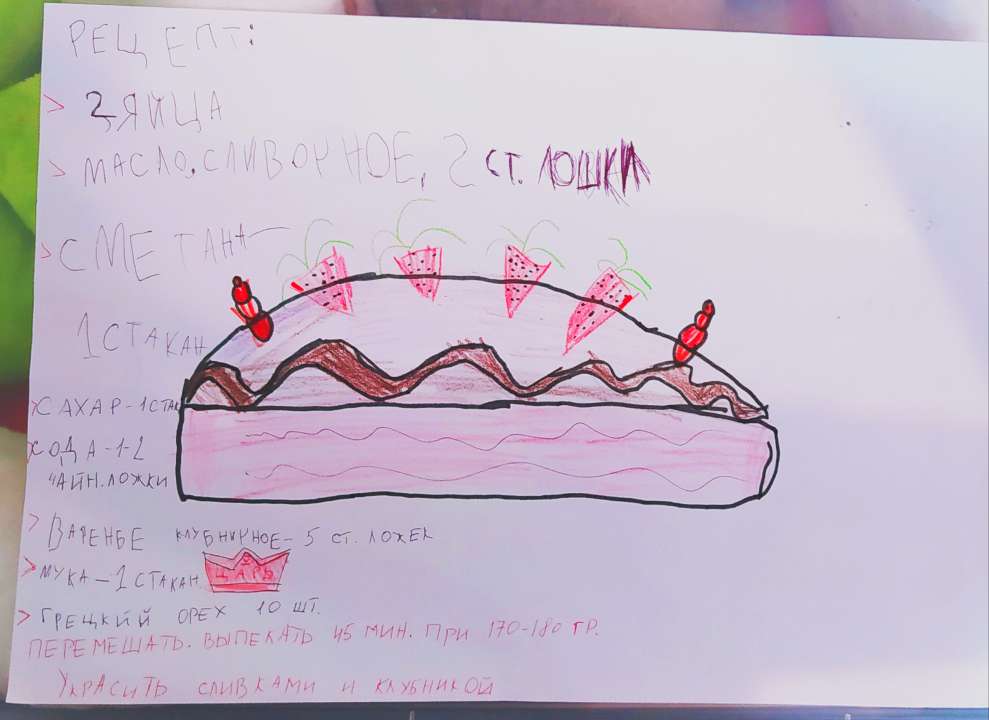 РЕЦЕПТ:
> 2 ЯЙЦА
> МАСЛО, СЛИВОЧНОЕ, 2 СТ. ЛОШКИ
> СМЕТАНА —
1 СТАКАН
> САХАР - 1 СТАК
> СОДА - 1-2
ЧАЙН. ЛОЖКИ
> ВАРЕНЬЕ КЛУБНИЧНОЕ - 5 СТ. ЛОЖЕК
> МУКА - 1 СТАКАН
ЦАРЬ
> ГРЕЦКИЙ ОРЕХ 10 ШТ.
ПЕРЕМЕШАТЬ. ВЫПЕКАТЬ 45 МИН. ПРИ 170-180 ГР.
УКРАСИТЬ СЛИВКАМИ И КЛУБНИКОЙ